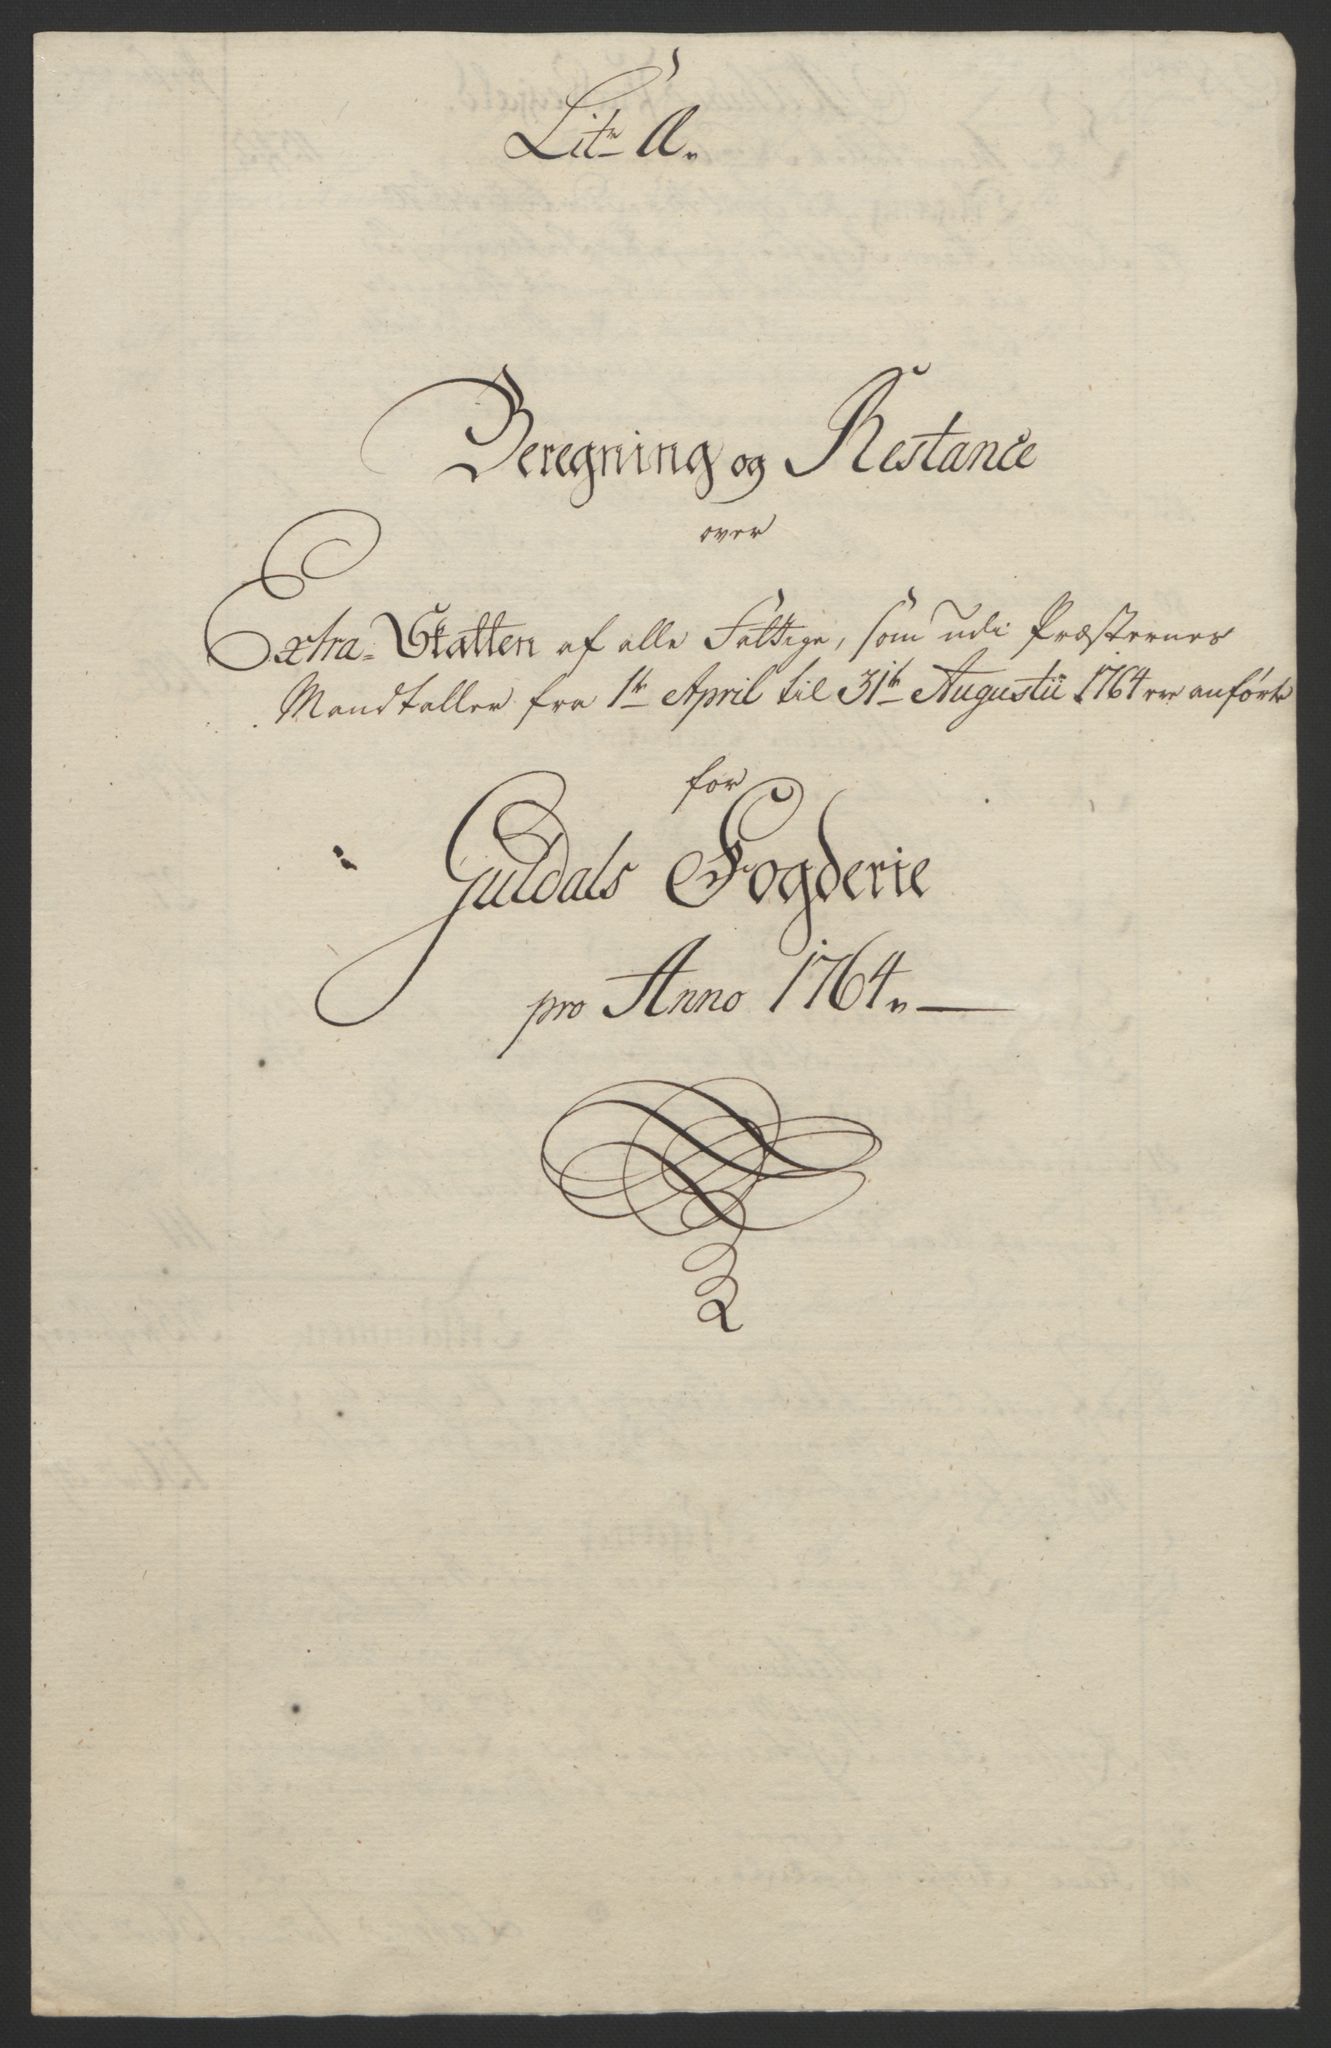 Litr A.
Beregning og Restance
over
Extra-Skatten af alle Fattige, som udi Præsternes
Mandtaller fra 1te April til 31te Augustii 1764 ere anförte
for
Guldals Fogderie
pro Anno 1764.